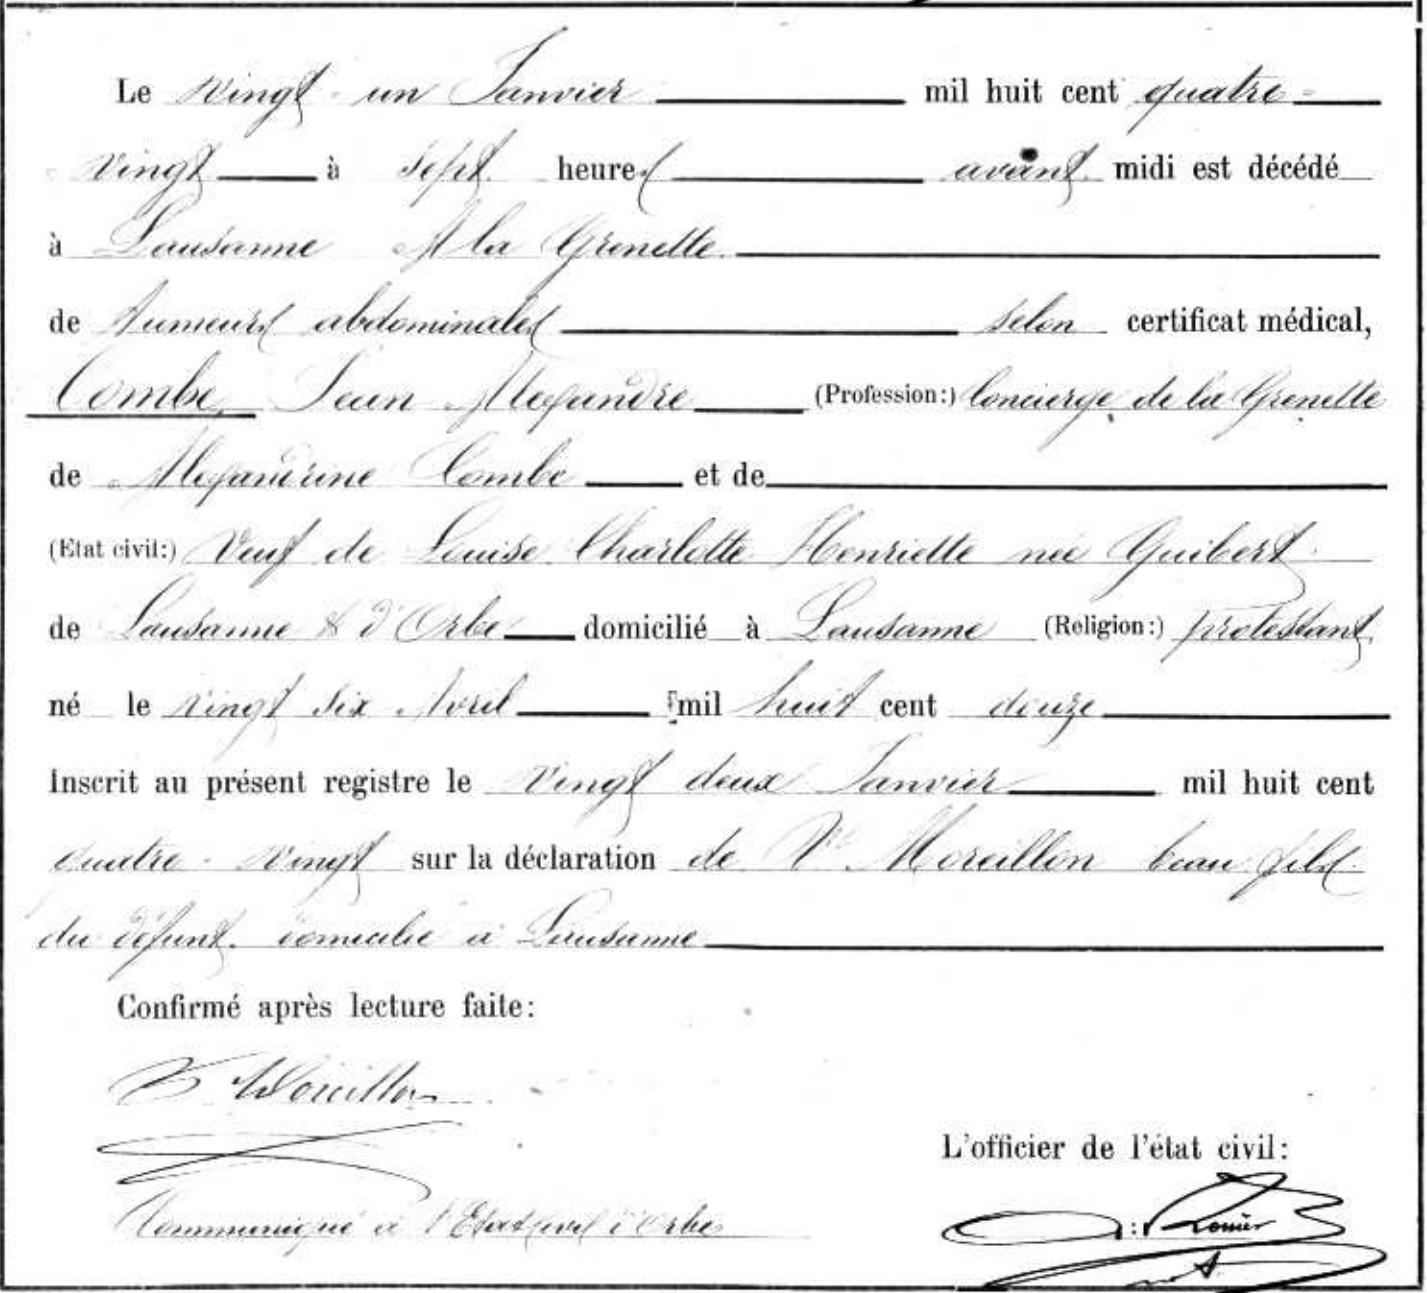 Le vingt un Janvier mil huit cent quatre-
vingt à sept heures avant midi est décédé
à Lausanne A la Grenette
de tumeurs abdominales selon certificat médical,
Combe, Jean Alexandre (Profession:) Concierge de la Grenette
de Alexandrine Combe et de
(Etat civil:) Veuf de Louise Charlotte Henriette née Guibert
de Lausanne & d'Orbe domicilié à Lausanne (Religion:) protestant
né le vingt six Avril mil huit cent douze
Inscrit au présent registre le vingt deux Janvier mil huit cent
quatre-vingt sur la déclaration de Moreillon beau fils
du défunt domicilié à Lausanne
Confirmé après lecture faite:
Moreillon
L'officier de l'état civil:
Communiqué à l'Etat civil d'Orbe